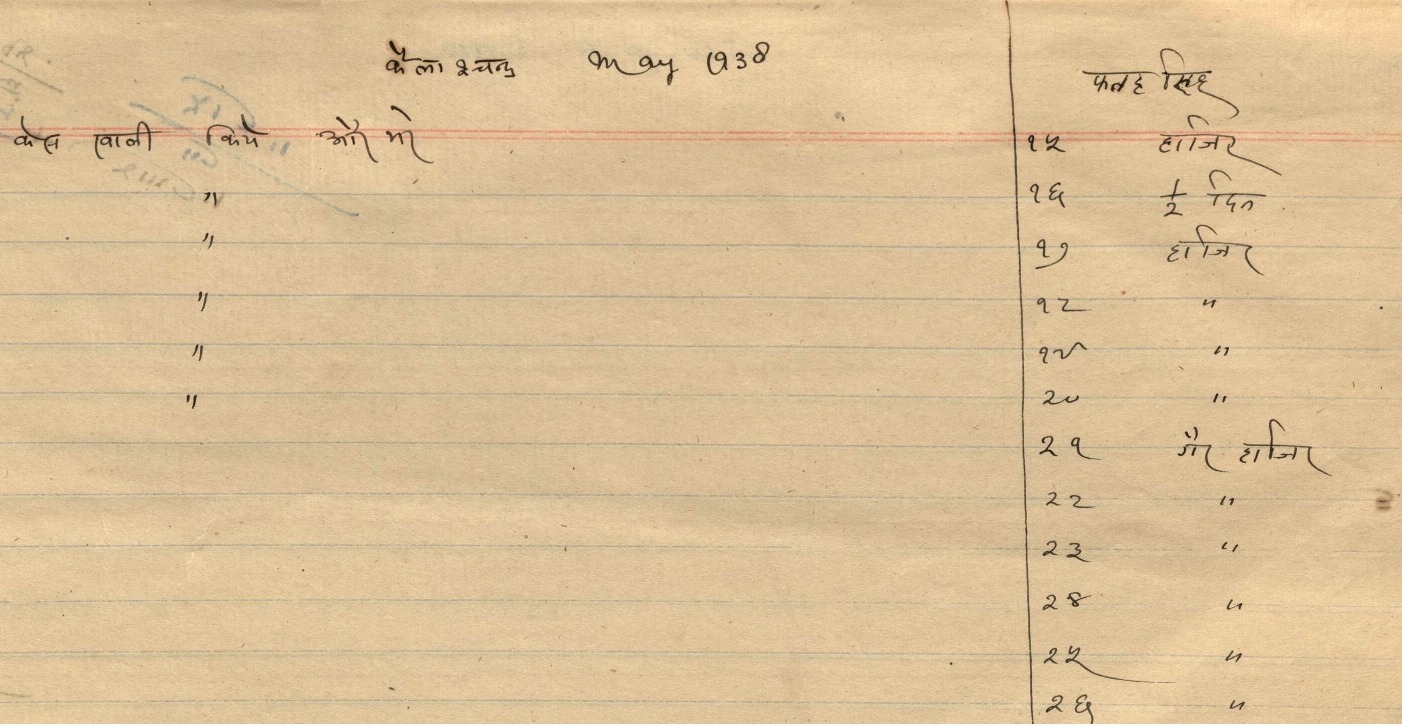 कैलाश्चन्द्र May 1938
केस खाली किये और भरे
"
"
"
"
"
फतह सिंह
१५ हाजिर
१६ 1/2 दिन
१७ हाजिर
१८ "
१९ "
२० "
२१ गैर हाजिर
२२ "
२३ "
२४ "
२५ "
२६ "